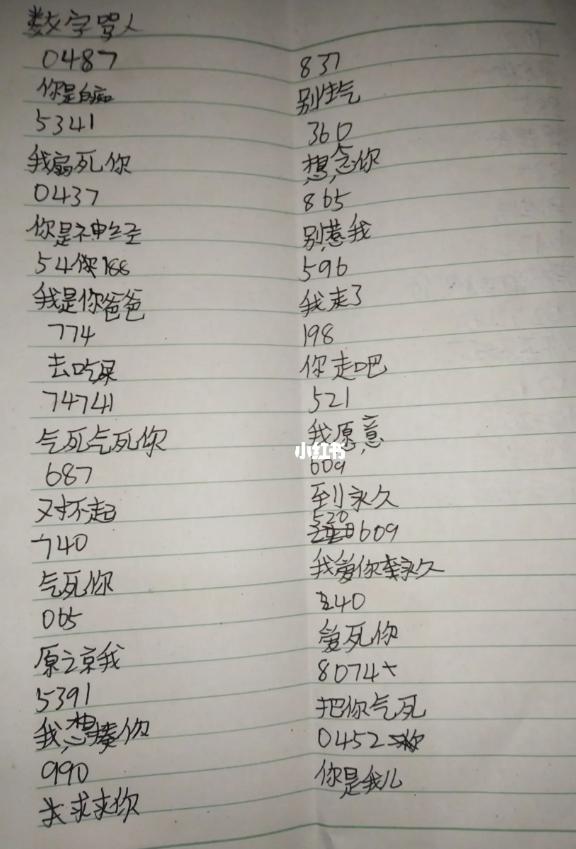 数字骂人
0487
你是白痴
5341
我扁死你
0437
你是神经
54你188
我是你爸爸
774
去吃屎
74741
气死气死你
687
对不起
740
气死你
065
原谅我
5391
我想揍你
990
求求你
837
别生气
360
想念你
865
别惹我
596
我走了
198
你走吧
521
我愿意
609
到永久
520
609
我爱你到永久
240
爱死你
8074
把你气死
0452
你是我儿
小红书